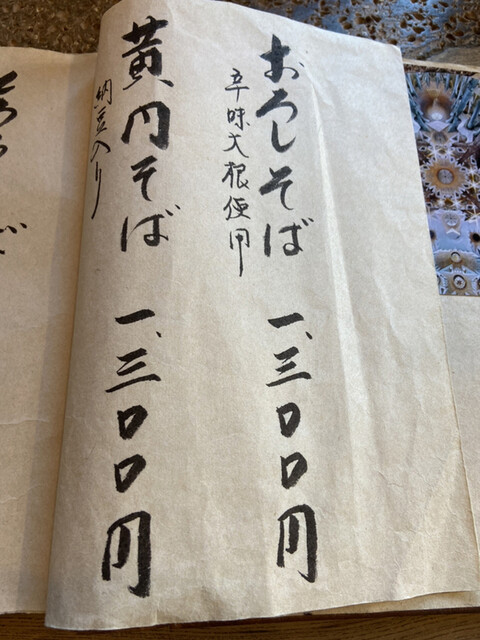 おろしそば 一、三〇〇円
辛味大根使用
黄門そば 一、三〇〇円
納豆入り